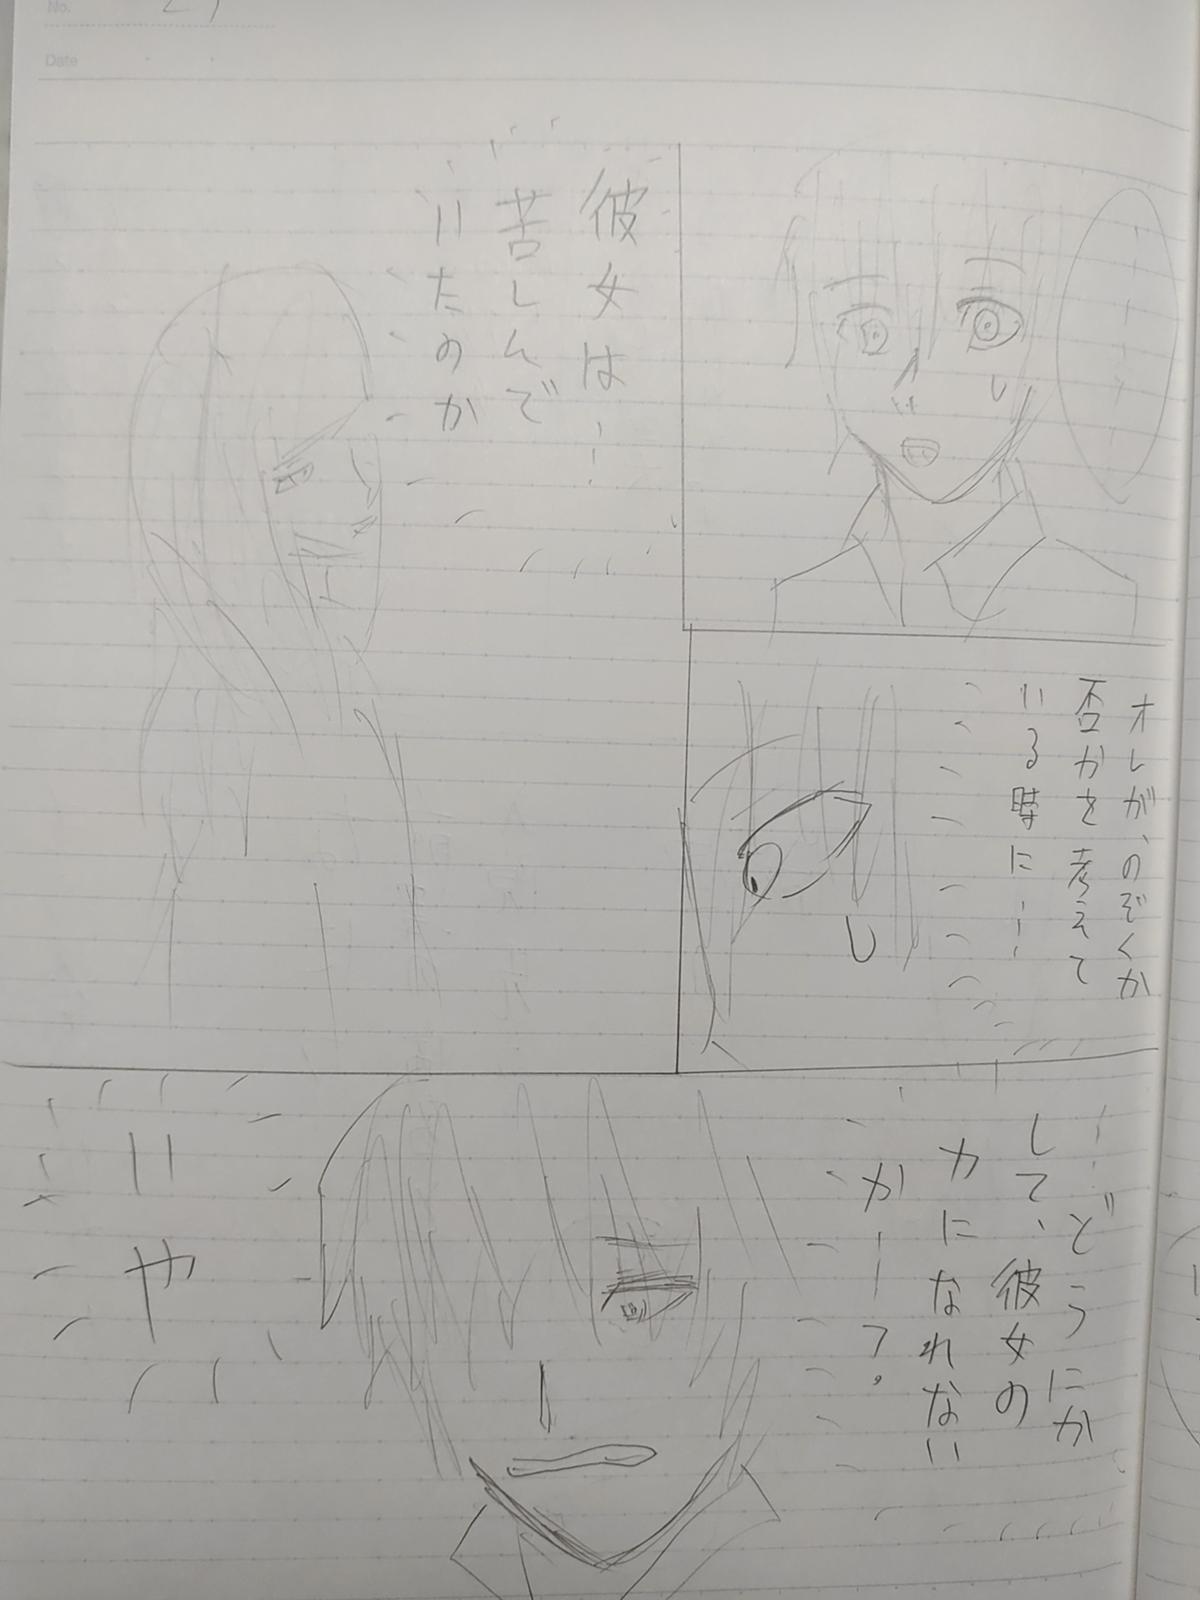 No.
Date
オレが、のぞくか
否かを考えて
いる時に…
彼女は…
苦しんで
いたのか
…どうにか
して、彼女の
力になれない
か——?
いや